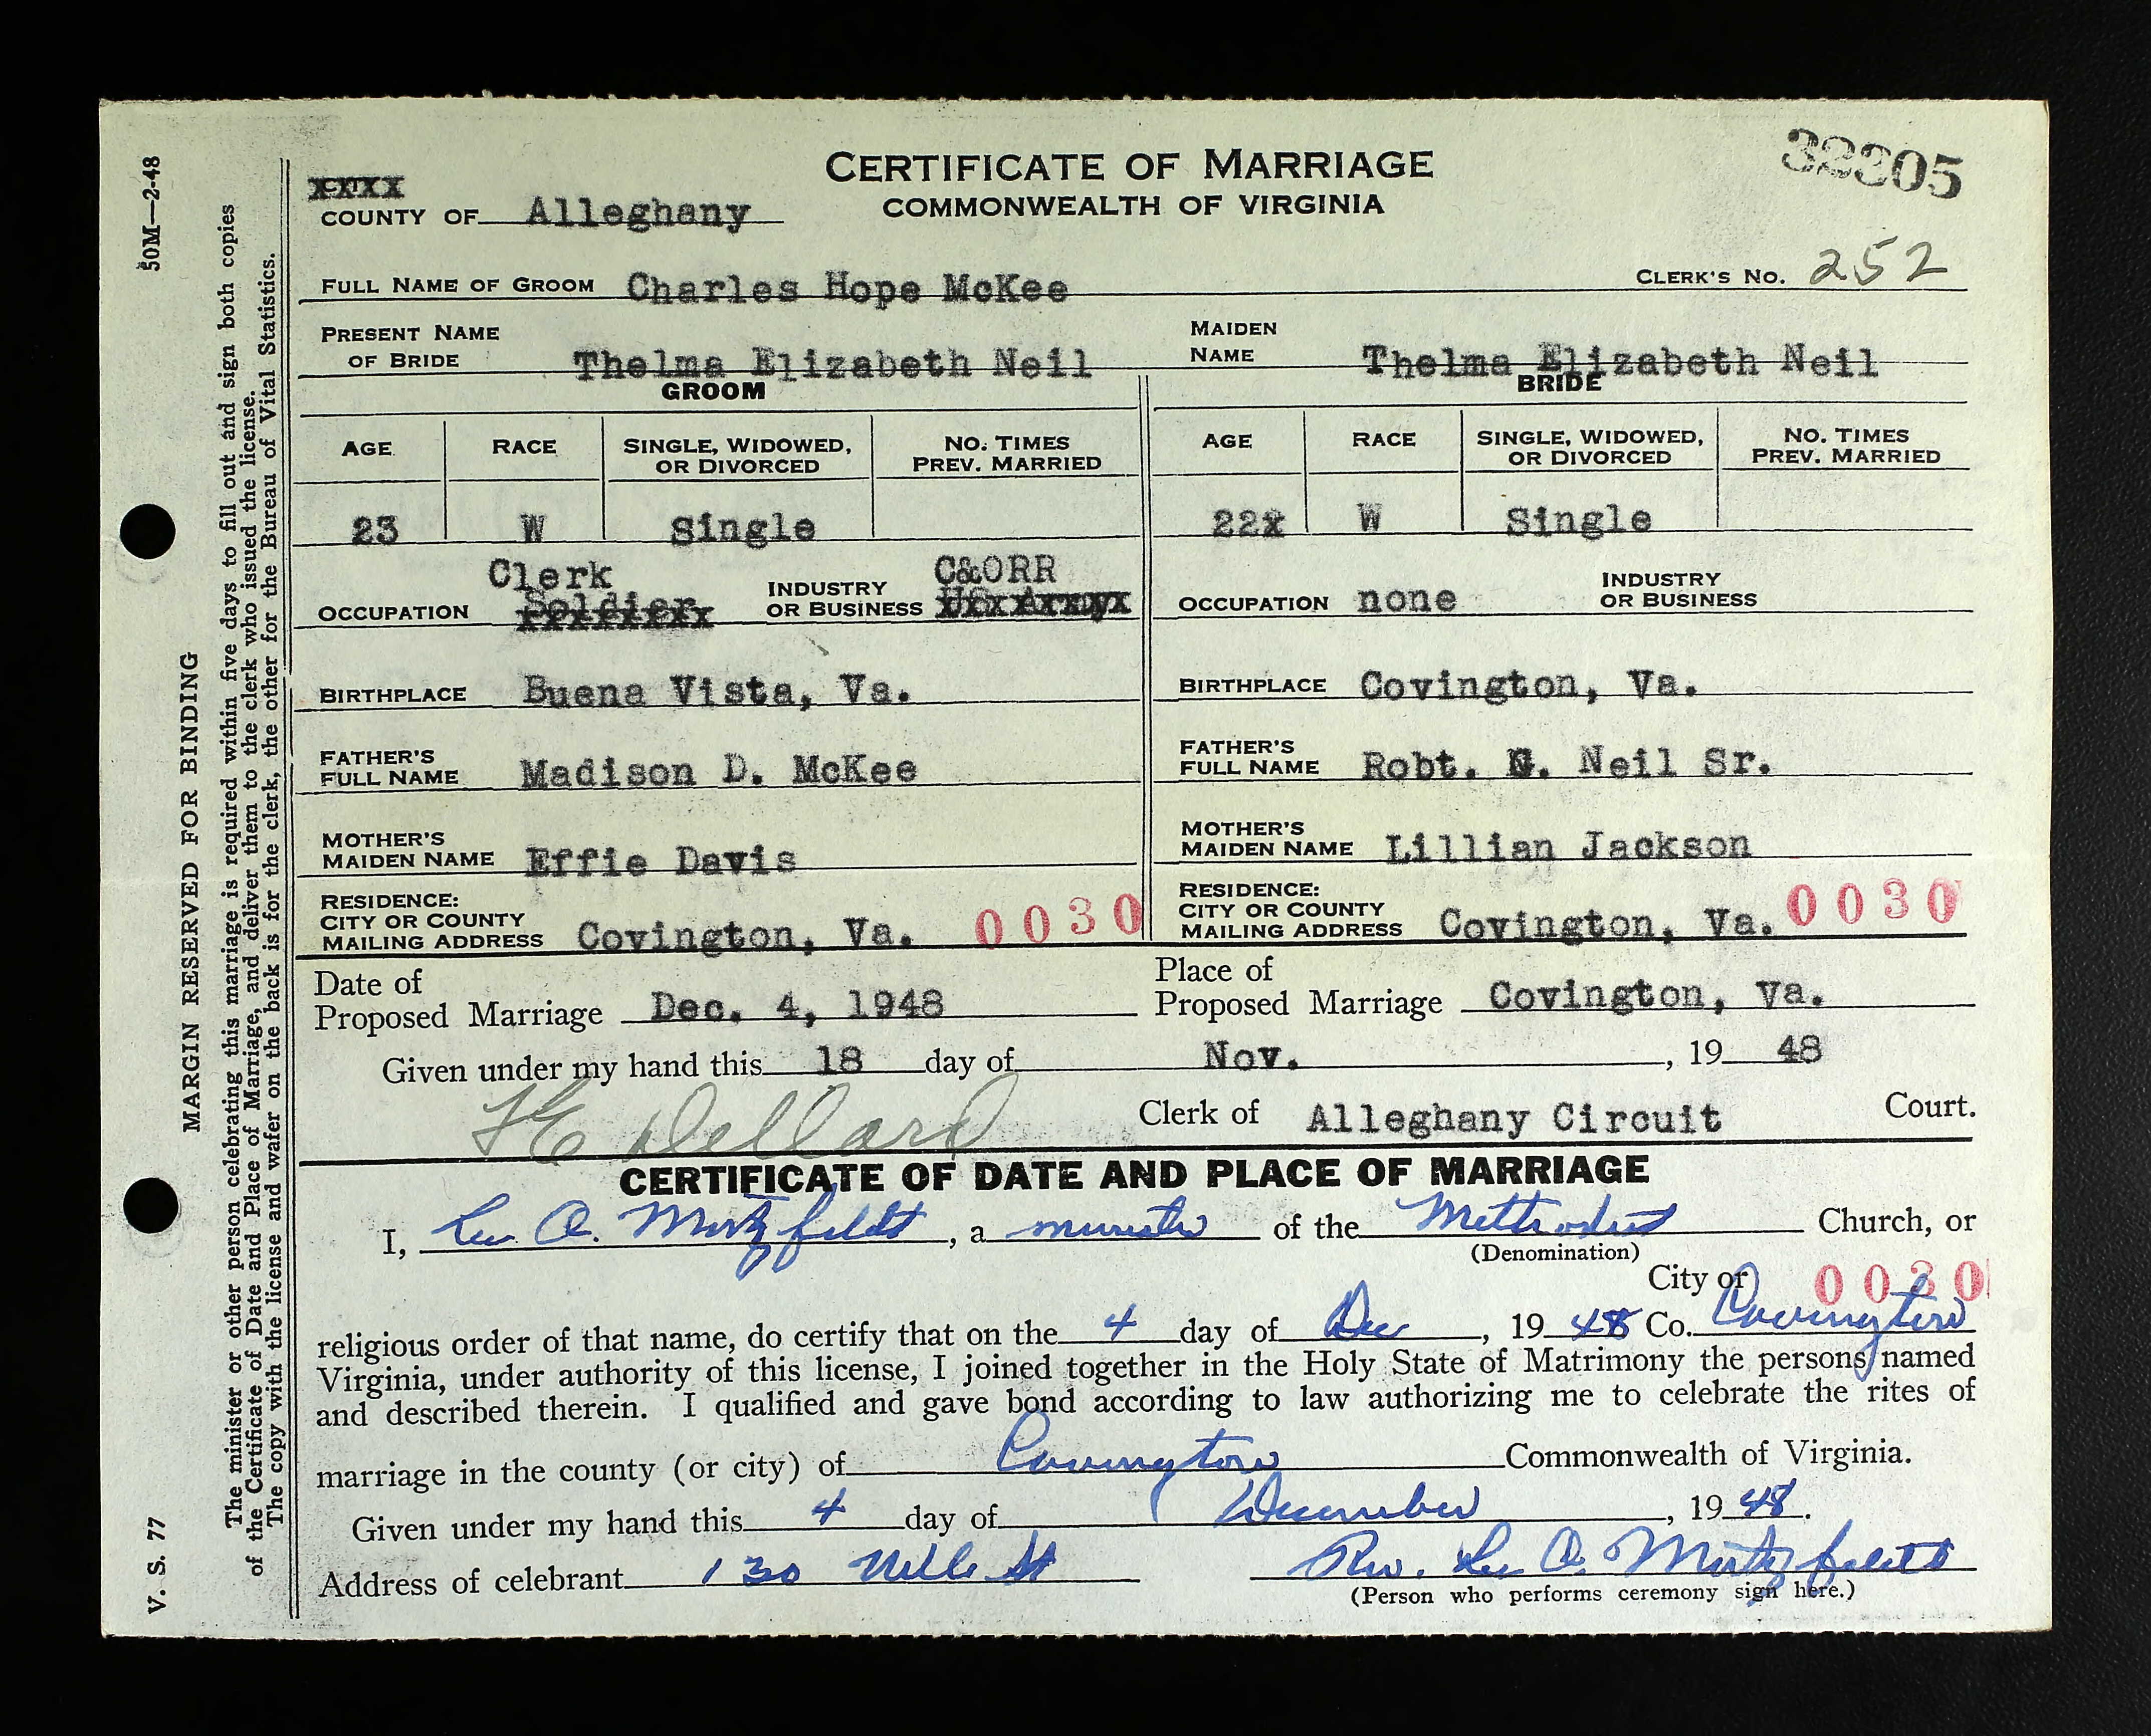 50M—2-48
MARGIN RESERVED FOR BINDING
V. S. 77
The minister or other person celebrating this marriage is required within five days to fill out and sign both copies
of the Certificate of Date and Place of Marriage, and deliver them to the clerk who issued the license.
The copy with the license and wafer on the back is for the clerk, the other for the Bureau of Vital Statistics.
CERTIFICATE OF MARRIAGE
COMMONWEALTH OF VIRGINIA
32305
COUNTY OF Alleghany
CLERK'S NO. 252
FULL NAME OF GROOM Charles Hope McKee
PRESENT NAME OF BRIDE Thelma Elizabeth Neil
MAIDEN NAME Thelma Elizabeth Neil
GROOM BRIDE
AGE RACE SINGLE, WIDOWED, OR DIVORCED NO. TIMES PREV. MARRIED AGE RACE SINGLE, WIDOWED, OR DIVORCED NO. TIMES PREV. MARRIED
23 W Single 22x W Single
OCCUPATION Clerk Soldier INDUSTRY OR BUSINESS C&ORR US Army OCCUPATION none INDUSTRY OR BUSINESS
BIRTHPLACE Buena Vista, Va. BIRTHPLACE Covington, Va.
FATHER'S FULL NAME Madison D. McKee FATHER'S FULL NAME Robt. G. Neil Sr.
MOTHER'S MAIDEN NAME Effie Davis MOTHER'S MAIDEN NAME Lillian Jackson
RESIDENCE: CITY OR COUNTY MAILING ADDRESS Covington, Va. 0030 RESIDENCE: CITY OR COUNTY MAILING ADDRESS Covington, Va. 0030
Date of Proposed Marriage Dec. 4, 1948 Place of Proposed Marriage Covington, Va.
Given under my hand this 18 day of Nov. , 19 48
Clerk of Alleghany Circuit Court.
CERTIFICATE OF DATE AND PLACE OF MARRIAGE
I, Lee O. , a minister of the Methodist Church, or
(Denomination)
City or 0030
religious order of that name, do certify that on the 4 day of Dec , 19 48 Co. Covington
Virginia, under authority of this license, I joined together in the Holy State of Matrimony the persons named
and described therein. I qualified and gave bond according to law authorizing me to celebrate the rites of
marriage in the county (or city) of Covington Commonwealth of Virginia.
Given under my hand this 4 day of December , 19 48.
Address of celebrant 130 St Rev. Lee O.
(Person who performs ceremony sign here.)